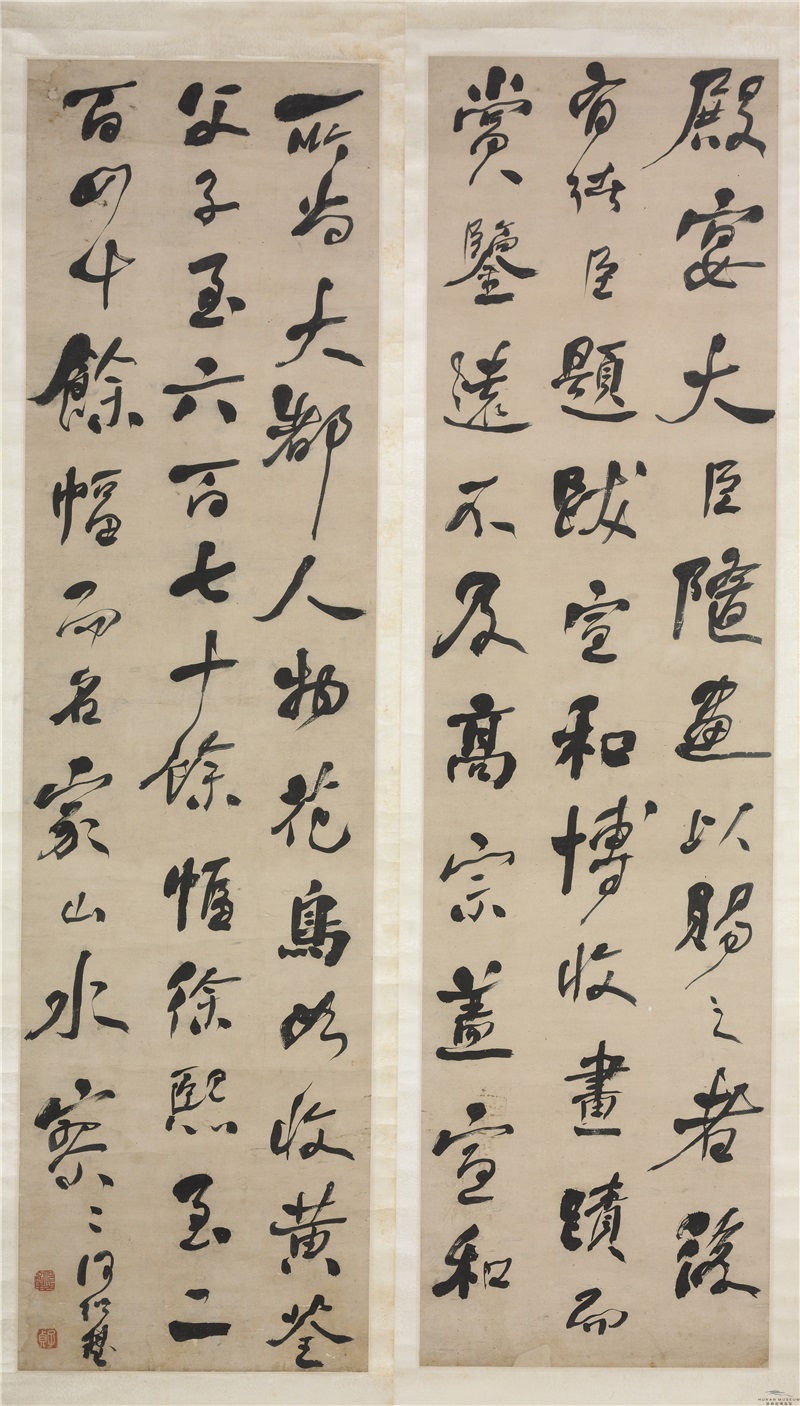 殿宴大臣隨畫以賜之者後
有諸臣題跋宣和博收畫蹟而
賞鑒遠不及高宗蓋宣和
所尚大都人物花鳥如收黃荃
父子至六百七十餘幅徐熙至二
百四十餘幅而名家山水寥〻何紹
HUNAN MUSEUM